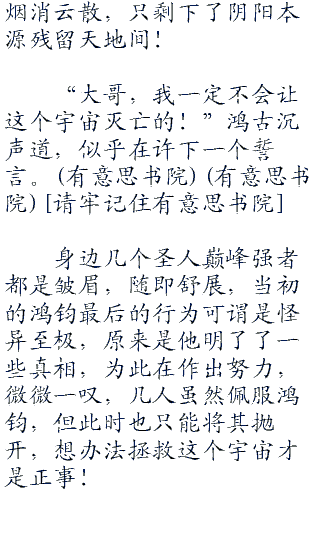 烟消云散，只剩下了阴阳本
源残留天地间！
“大哥，我一定不会让
这个宇宙灭亡的！”鸿古沉
声道，似乎在许下一个誓
言。(有意思书院)(有意思书
院)[请牢记住有意思书院]
身边几个圣人巅峰强者
都是皱眉，随即舒展，当初
的鸿钧最后的行为可谓是怪
异至极，原来是他明了了一
些真相，为此在作出努力，
微微一叹，几人虽然佩服鸿
钧，但此时也只能将其抛
开，想办法拯救这个宇宙才
是正事！